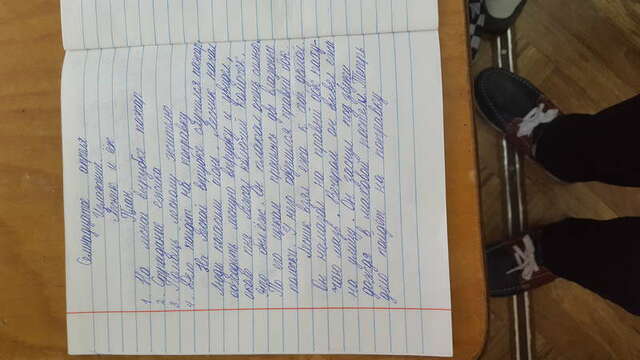 Семнадцатое апреля
Изложение.
Лесник и ёж
План.
1. На лесной вырубке пожар
2. Страдание ёжика
3. Помощь лесному жителю
4. Дело пойдёт на поправку
На лесной вырубке случился пожар,
люди погасили огонь. Лесник начал
обходить лесную вырубку и увидел,
около пня лежал колючий комочек.
Это был ёж. Он плакал очень сильно.
По его щекам пришлись две влажные
полоски. У него обжёгся правый бок.
Лесник взял ежа к себе домой.
Он намазал на правый бок паху-
чаю мазь. Вечером он вывел ежа
на улицу. Он заснул под звуки
дождя в маховой постели. Теперь
дело пойдёт на поправку